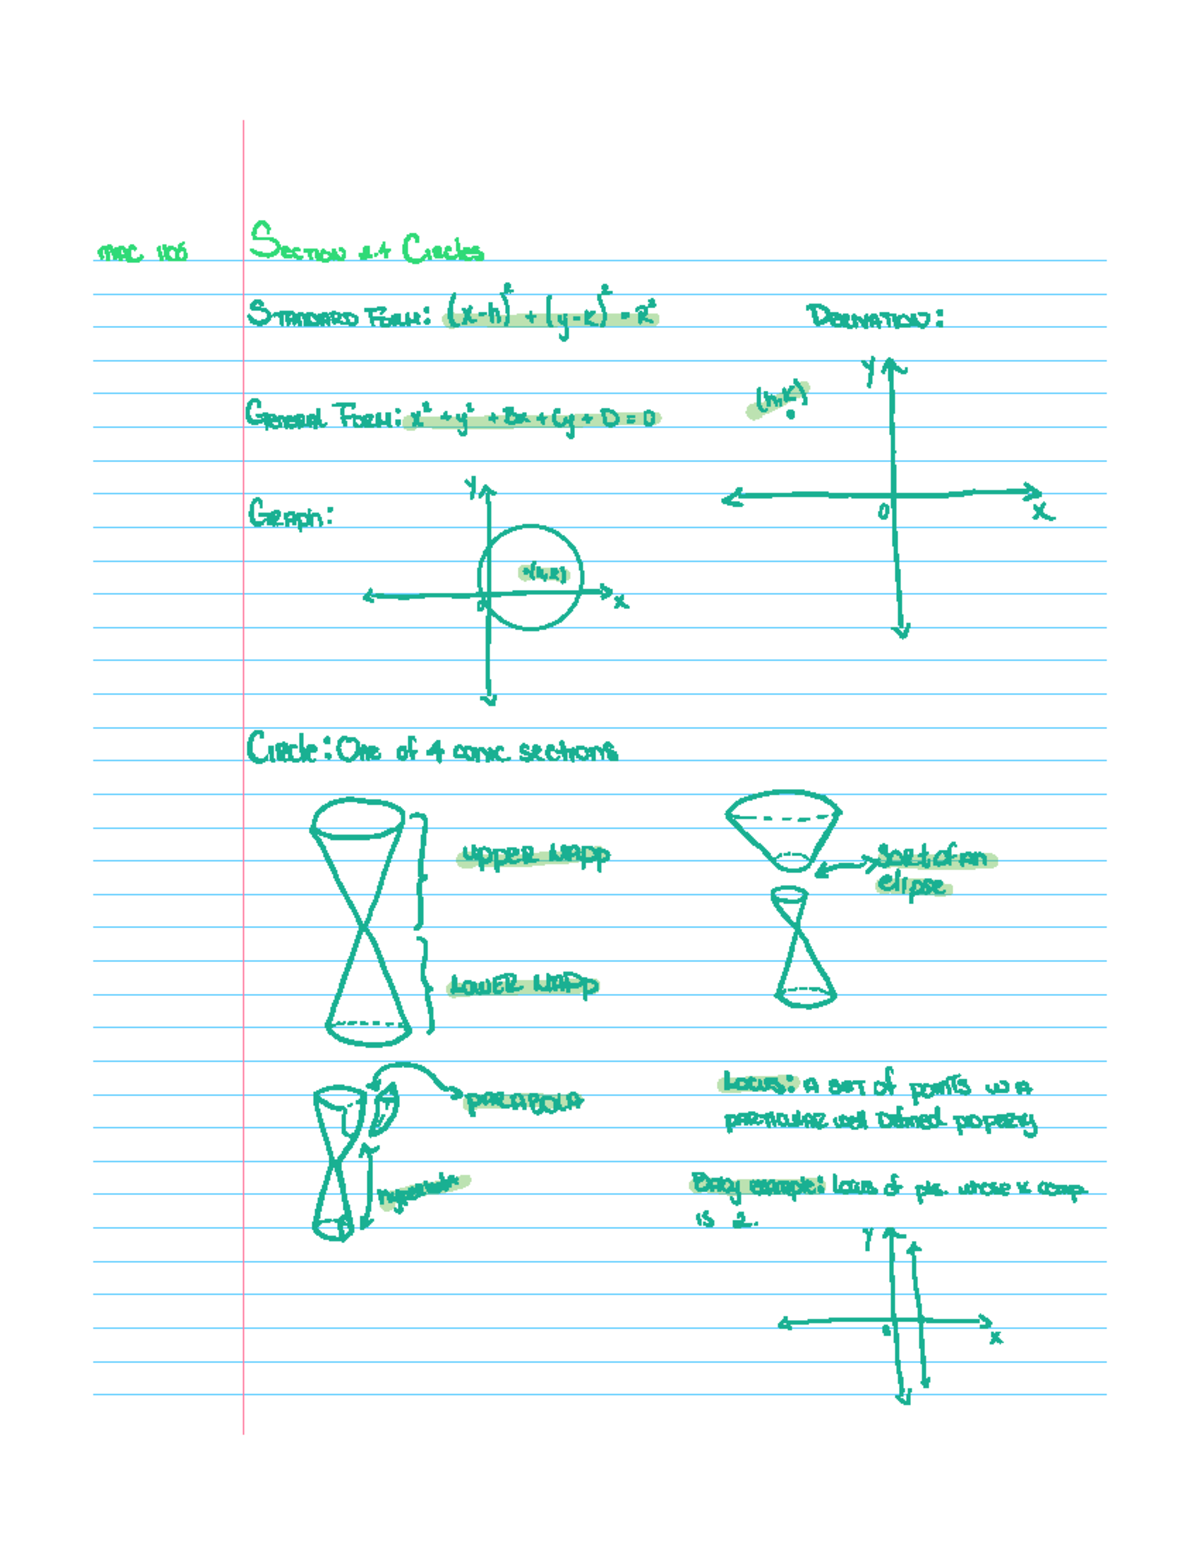 MAC 1105
Section 2.4 Circles
Standard Form: (x-h)² + (y-k)² = R²
Derivation:
y
(h,k)
General Form: x² + y² + Bx + Cy + D = 0
0
x
Graph:
y
•(h,k)
0
x
Circle: One of 4 conic sections
Upper Napp
Sort of an
elipse
Lower Napp
Parabola
Locus: A set of points w a
particular well defined property
Hyperbola
Easy example: Locus of pts. whose x comp.
is 2.
y
0
x